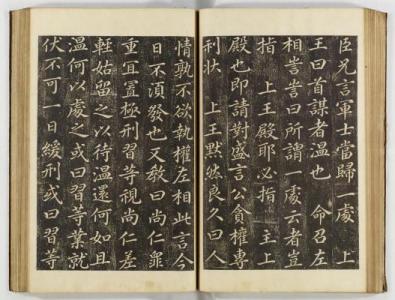 臣兄言軍士當歸一處 上
王曰首謀者溫也 命召左
相訔訔曰所謂一處云者豈
指 上王殿耶必指 主上
殿也即請對盛言公貪權專
利狀 上王默然良久曰人
情孰不欲執權左相此言今
日不湏發也又敎曰尚仁罪
重宜置極刑習等視尚仁差
輕姑留之以待溫還何如且
溫何以處之或曰習等業就
伏不可一日緩刑或曰習等